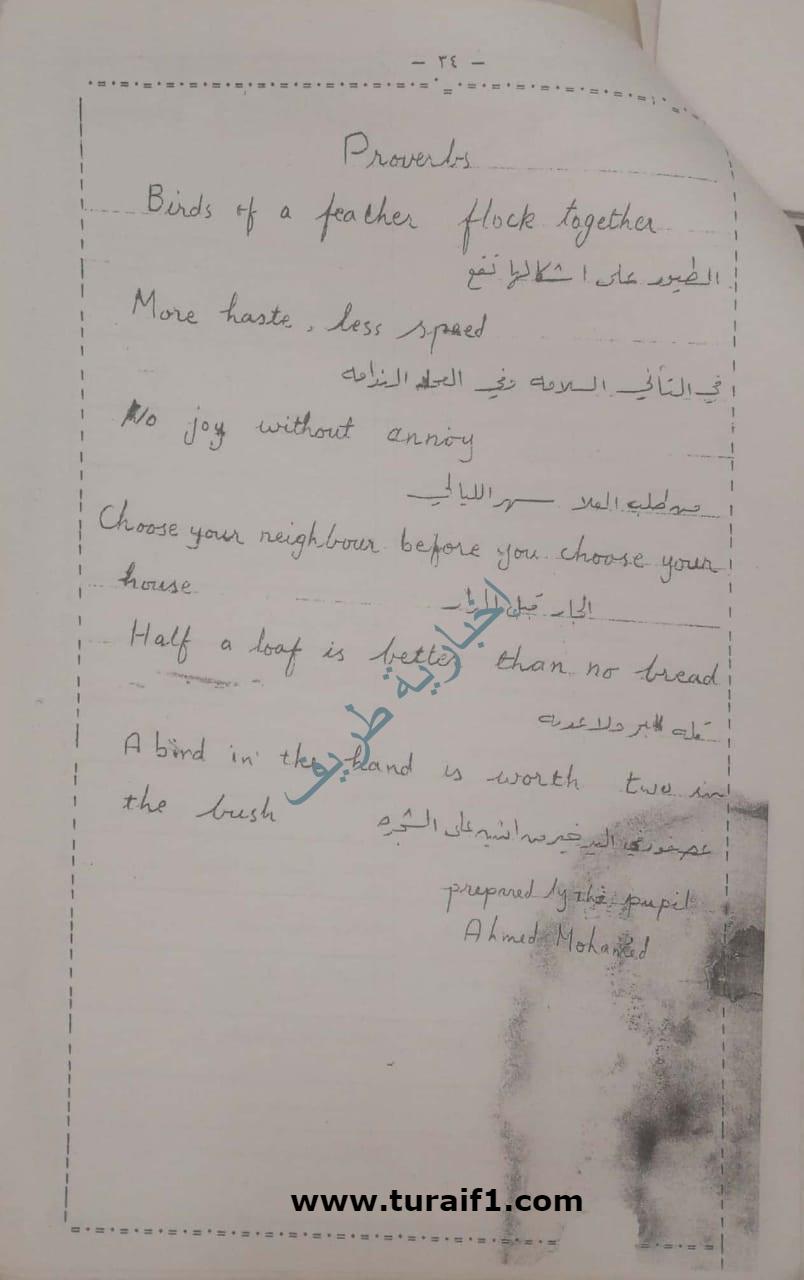 - ٣٤ -
Proverbs
Birds of a feather flock together
الطيور على اشكالها تقع
More haste, less speed
في التأني السلامه وفي العجله الندامه
No joy without annoy
من طلب العلا سهر الليالي
Choose your neighbour before you choose your
house
الجار قبل الدار
Half a loaf is better than no bread
A bird in the hand is worth two in
the bush
عصفور في اليد خير من اثنين على الشجره
prepared by the pupil
Ahmed Mohamed
اخبارية طريف
www.turaif1.com